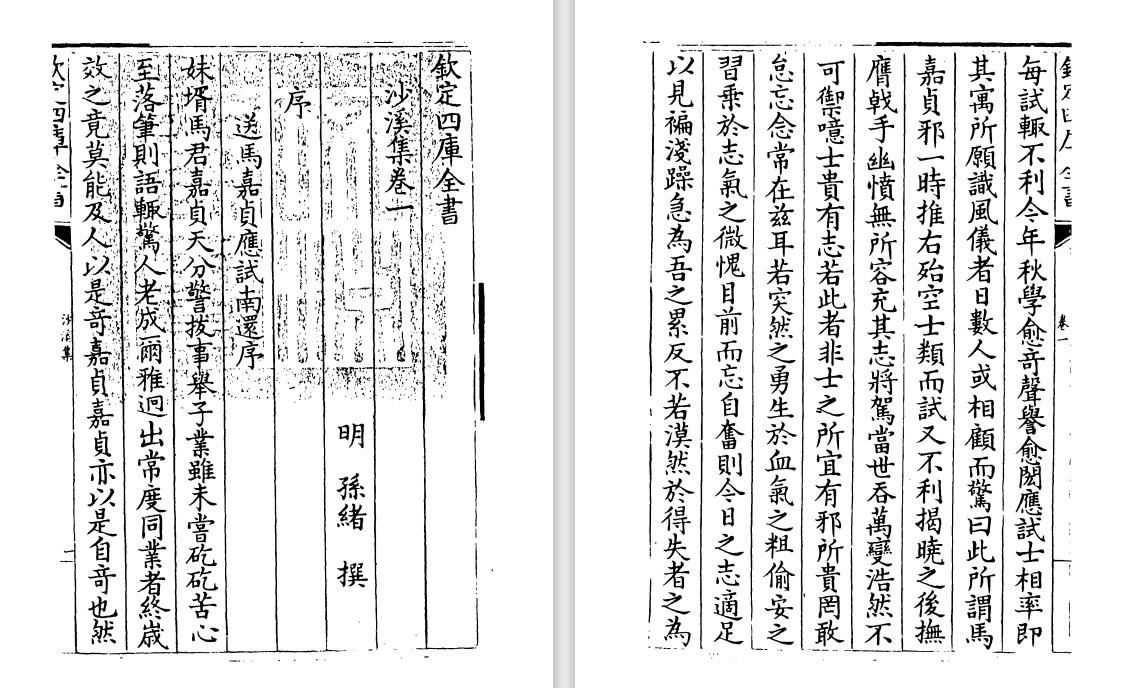 欽定四庫全書
沙溪集卷一
明 孫緒 撰
序
送馬嘉貞應試南還序
妹壻馬君嘉貞天分警拔事舉子業雖未嘗矻矻苦心
至落筆則語輒驚人老成爾雅迥出常度同業者終歳
效之竟莫能及人以是竒嘉貞嘉貞亦以是自竒也然
沙溪集
卷一
每試輒不利今年秋學愈竒聲譽愈閎應試士相率即
其寓所願識風儀者日數人或相顧而驚曰此所謂馬
嘉貞邪一時推右殆空士類而試又不利揭曉之後撫
膺戟手幽憤無所容充其志將駕當世吞萬變浩然不
可禦噫士貴有志若此者非士之所宜有邪所貴罔敢
怠忘念常在兹耳若突然之勇生於血氣之粗偷安之
習乗於志氣之微愧目前而忘自奮則今日之志適足
以見褊淺躁急為吾之累反不若漠然於得失者之為